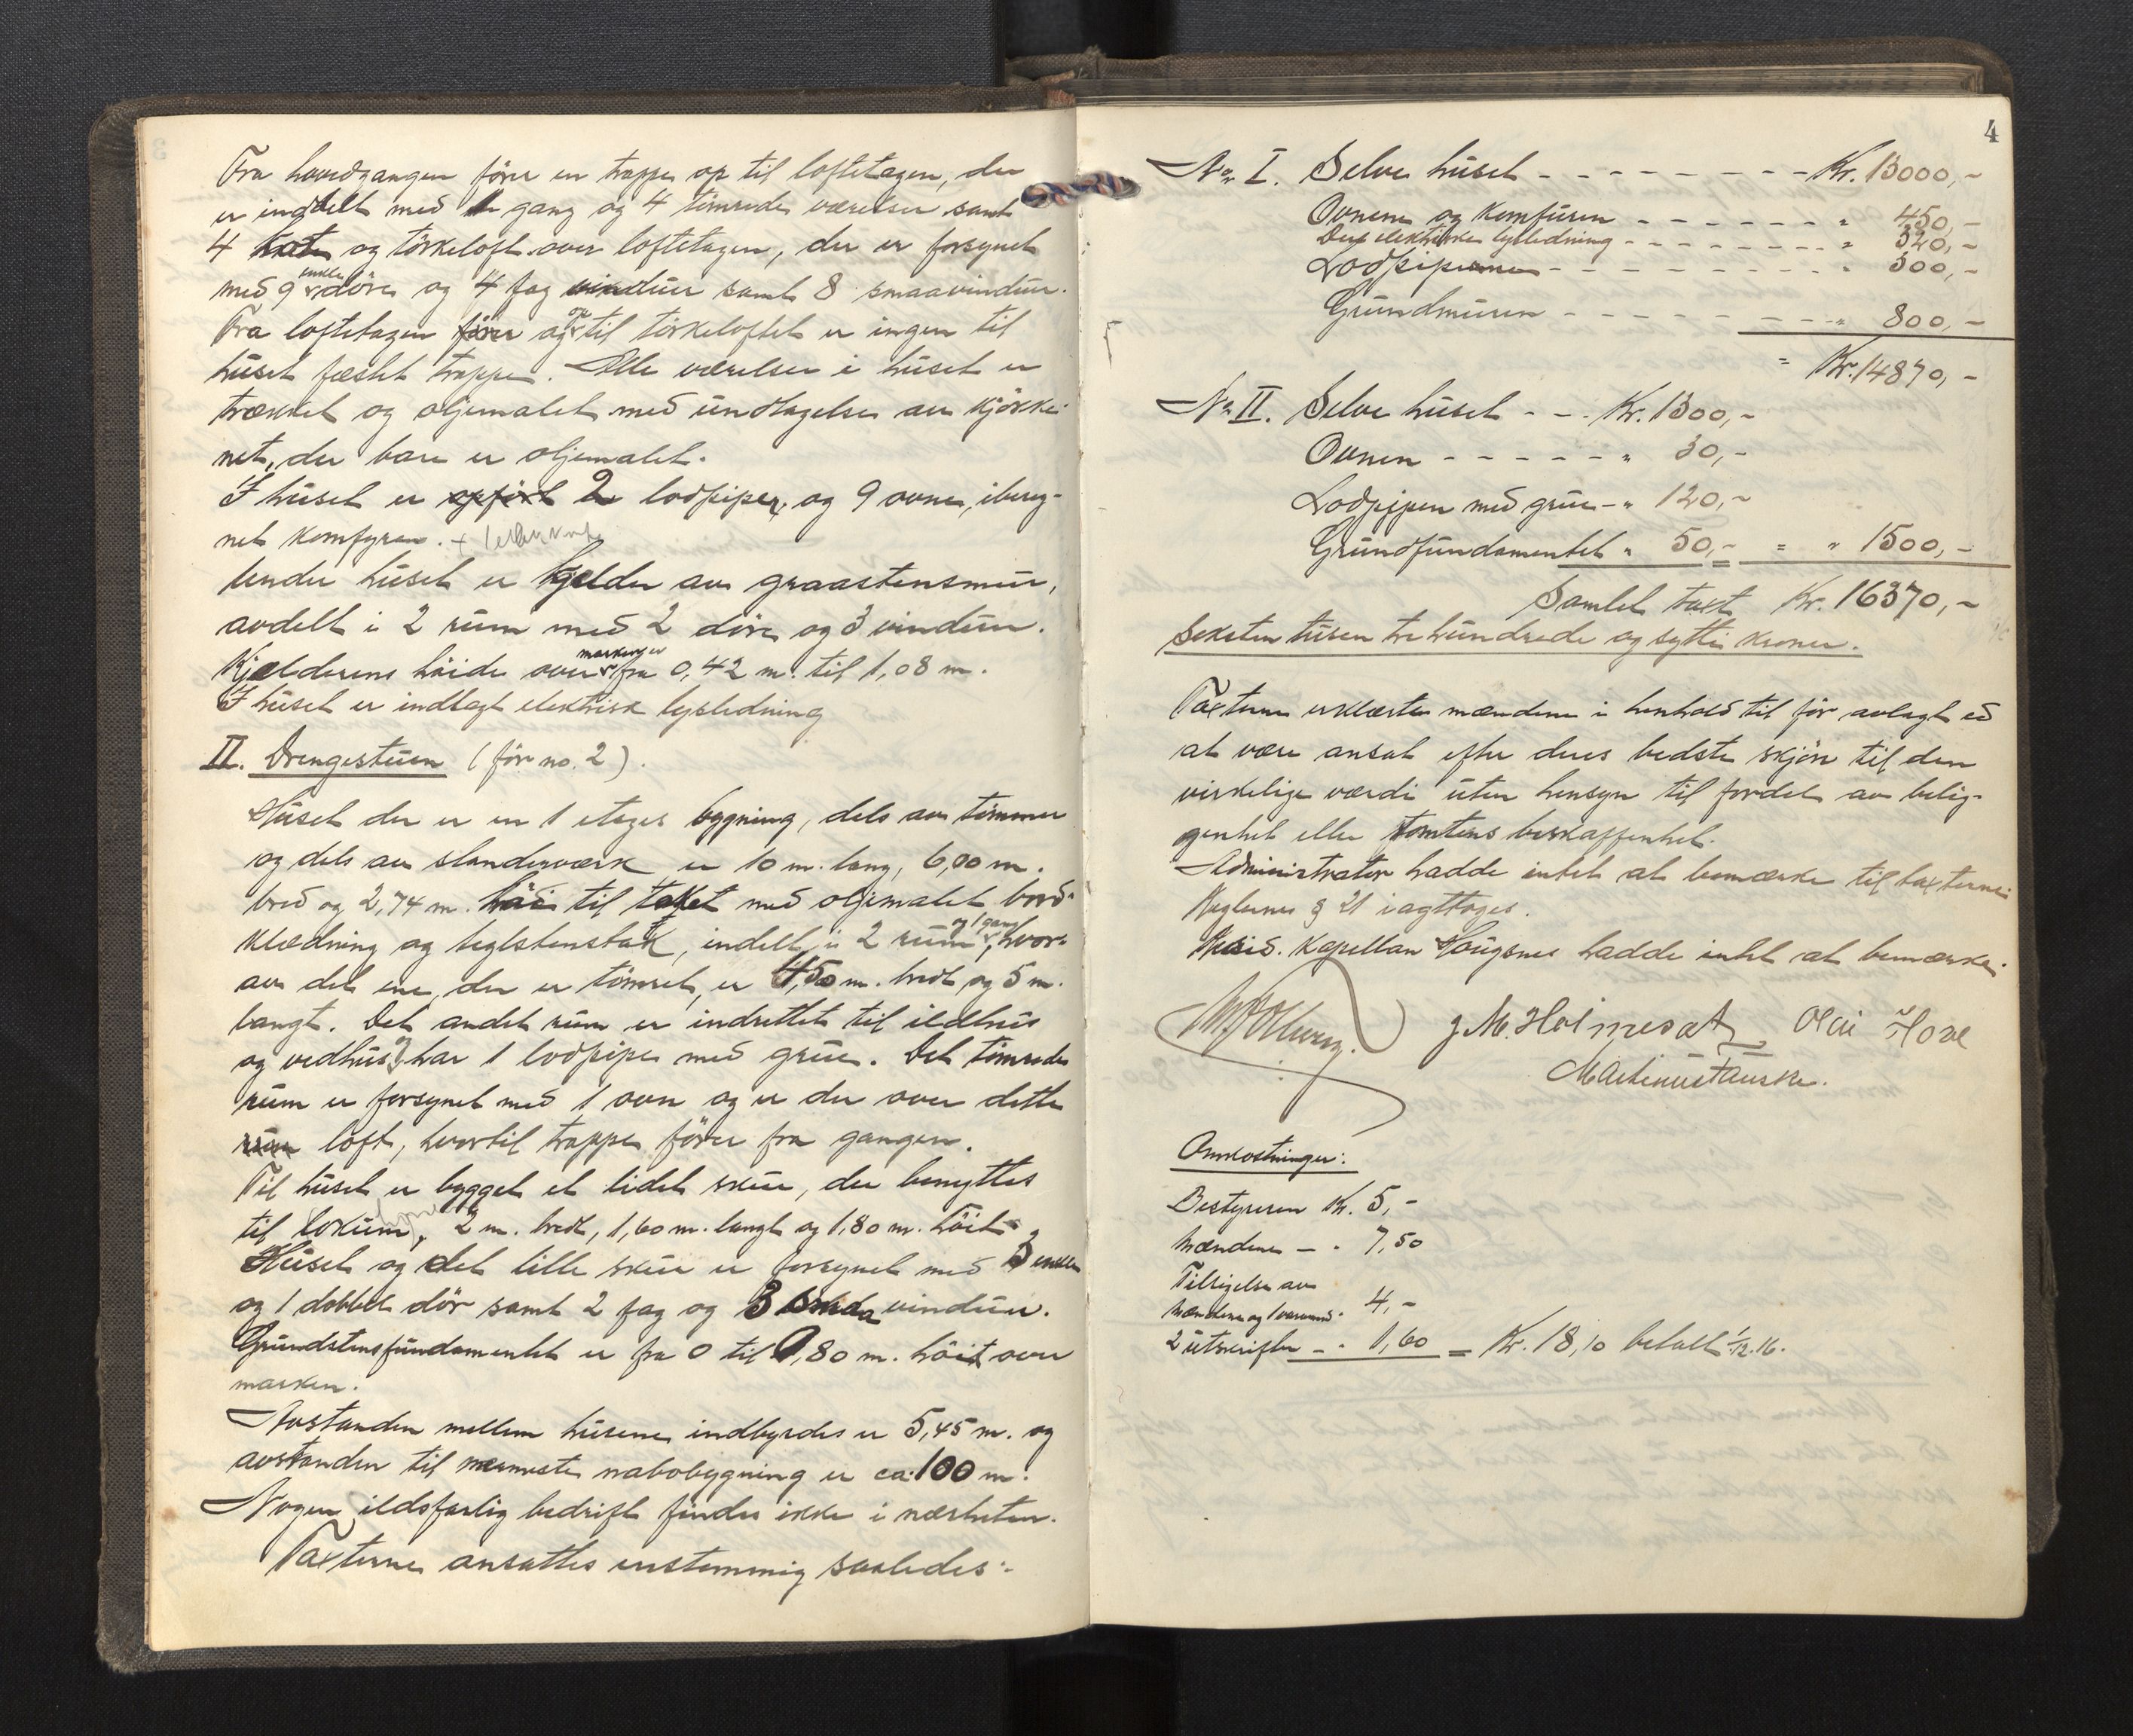 Fra hovedgangen fører en trappe op til loftetagen, der
er inddelt med 1 gang og 4 tømrede værelser samt
4 og tørkeloft over loftetagen, der er forsynet
med 9 enkle døre og 4 fag vinduer samt 8 smaavinduer.
Fra loftetagen fører og op til tørkeloftet er ingen til
huset fæstet trappe. Alle værelser i huset er
trækket og oljemalet med undtagelse av kjøkke-
net, der bare er oljemalet.
I huset er opført 2 lodpiper, og 9 ovne, ibereg-
net komfyren.
Under huset er kjelder av graastensmur,
avdelt i 2 rum med 2 døre og 3 vinduer.
Kjælderens høide over marken er fra 0,42 m. til 1,08 m.
I huset er indlagt elektrisk lysledning
II. Drengestuen (før no. 2).
Huset der er en 1 etages bygning, dels av tømmer
og dels av standerværk er 10 m. lang, 6,00 m.
bred og 2,74 m. høi til taket med oljemalet bord-
klædning og teglstenstak, indelt i 2 rum og 1 gang, hvor-
av det ene, der er tømret, er 4,50 m. bredt og 5 m.
langt. Det andet rum er indrettet til ildhus
og vedhus og har 1 lodpipe med grue. Det tømrede
rum er forsynet med 1 ovn og er der over dette
rum loft, hvortil trappe fører fra gangen.
Til huset er bygget et lidet skur, der benyttes
til lokum, 2 m. bredt, 1,60 m. langt og 1,80 m. høit.
Huset og det lille skur er forsynet med 3 enkle
og 1 dobbel dør samt 2 fag og 3 smaa vinduer.
Grundstensfundamentet er fra 0 til 0,80 m. høit over
marken.
Avstanden mellem husene indbyrdes er 5,45 m. og
avstanden til nærmeste nabobygning er ca. 100 m.
Nogen ildsfarlig bedrift findes ikke i nærheten.
Taxterne ansattes enstemmig saaledes:
4
No. I. Selve huset - - - - - - - - Kr. 13000,-
Ovnene og komfuren - - - - - - " 450,-
Den elektriske lysledning - - - - - - - - " 320,-
Lodpiperne - - - - - - - - " 300,-
Grundmuren - - - - - - - - " 800,-
= Kr. 14870,-
No. II. Selve huset - - - Kr. 1300,-
Ovnen - - - - - - " 30,-
Lodpipen med grue - " 120,-
Grundfundamentet " 50,- = " 1500,-
Samlet taxt Kr. 16370,-
Seksten tusen tre hundrede og sytti kroner.
Taxterne erklærte mændene i henhold til før avlagt ed
at være ansat efter deres bedste skjøn til den
virkelige værdi uten hensyn til fordel av belig-
genhet eller tomtens beskaffenhet.
Administrator hadde intet at bemærke til taxterne.
Reglernes § 21 iagttoges.
Resid. Kapellan Hougsnes hadde intet at bemærke.
J. M. Holmesæt Olai Hove
Martinus Tauske.
Omkostninger:
Bestyreren Kr. 5,-
Mændene - " 7,50
Tilsigelse av
mændene og 1 4,-
2 utskrifter - " 1,60 = Kr. 18,10 betalt 1/12.16.